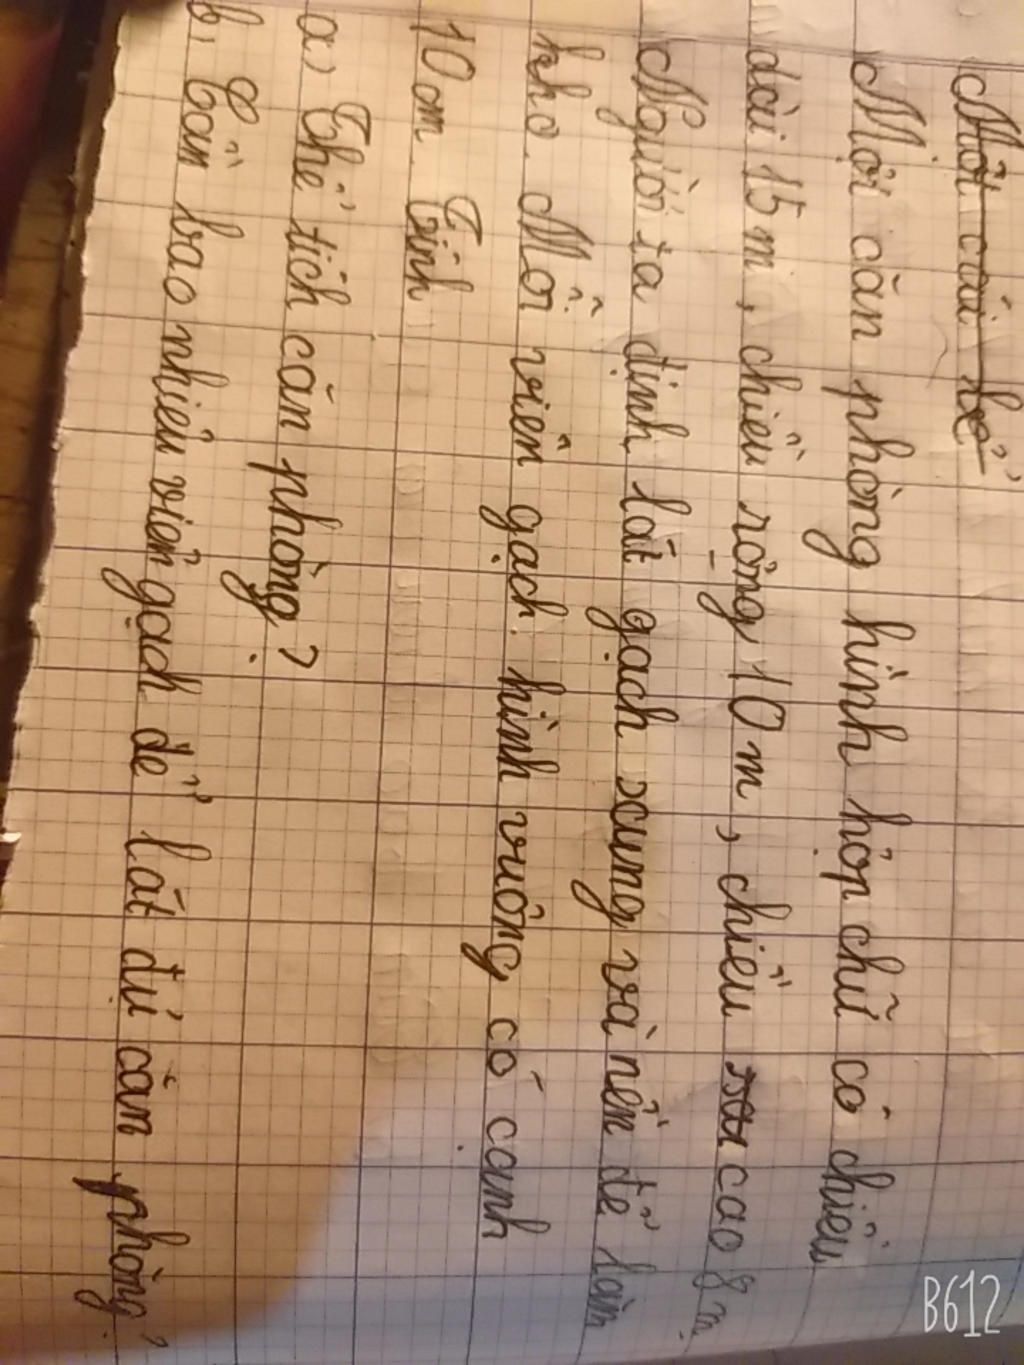 Một cái bể
Một căn phòng hình hộp chữ có chiều
dài 15 m, chiều rộng 10 m, chiều cao 8 m.
Người ta định lát gạch xung và nền để làm
kho. Mỗi viên gạch hình vuông có cạnh
10 cm. Tính
a) Thể tích căn phòng?
b, Cần bao nhiêu viên gạch để lát đủ căn phòng?
B612